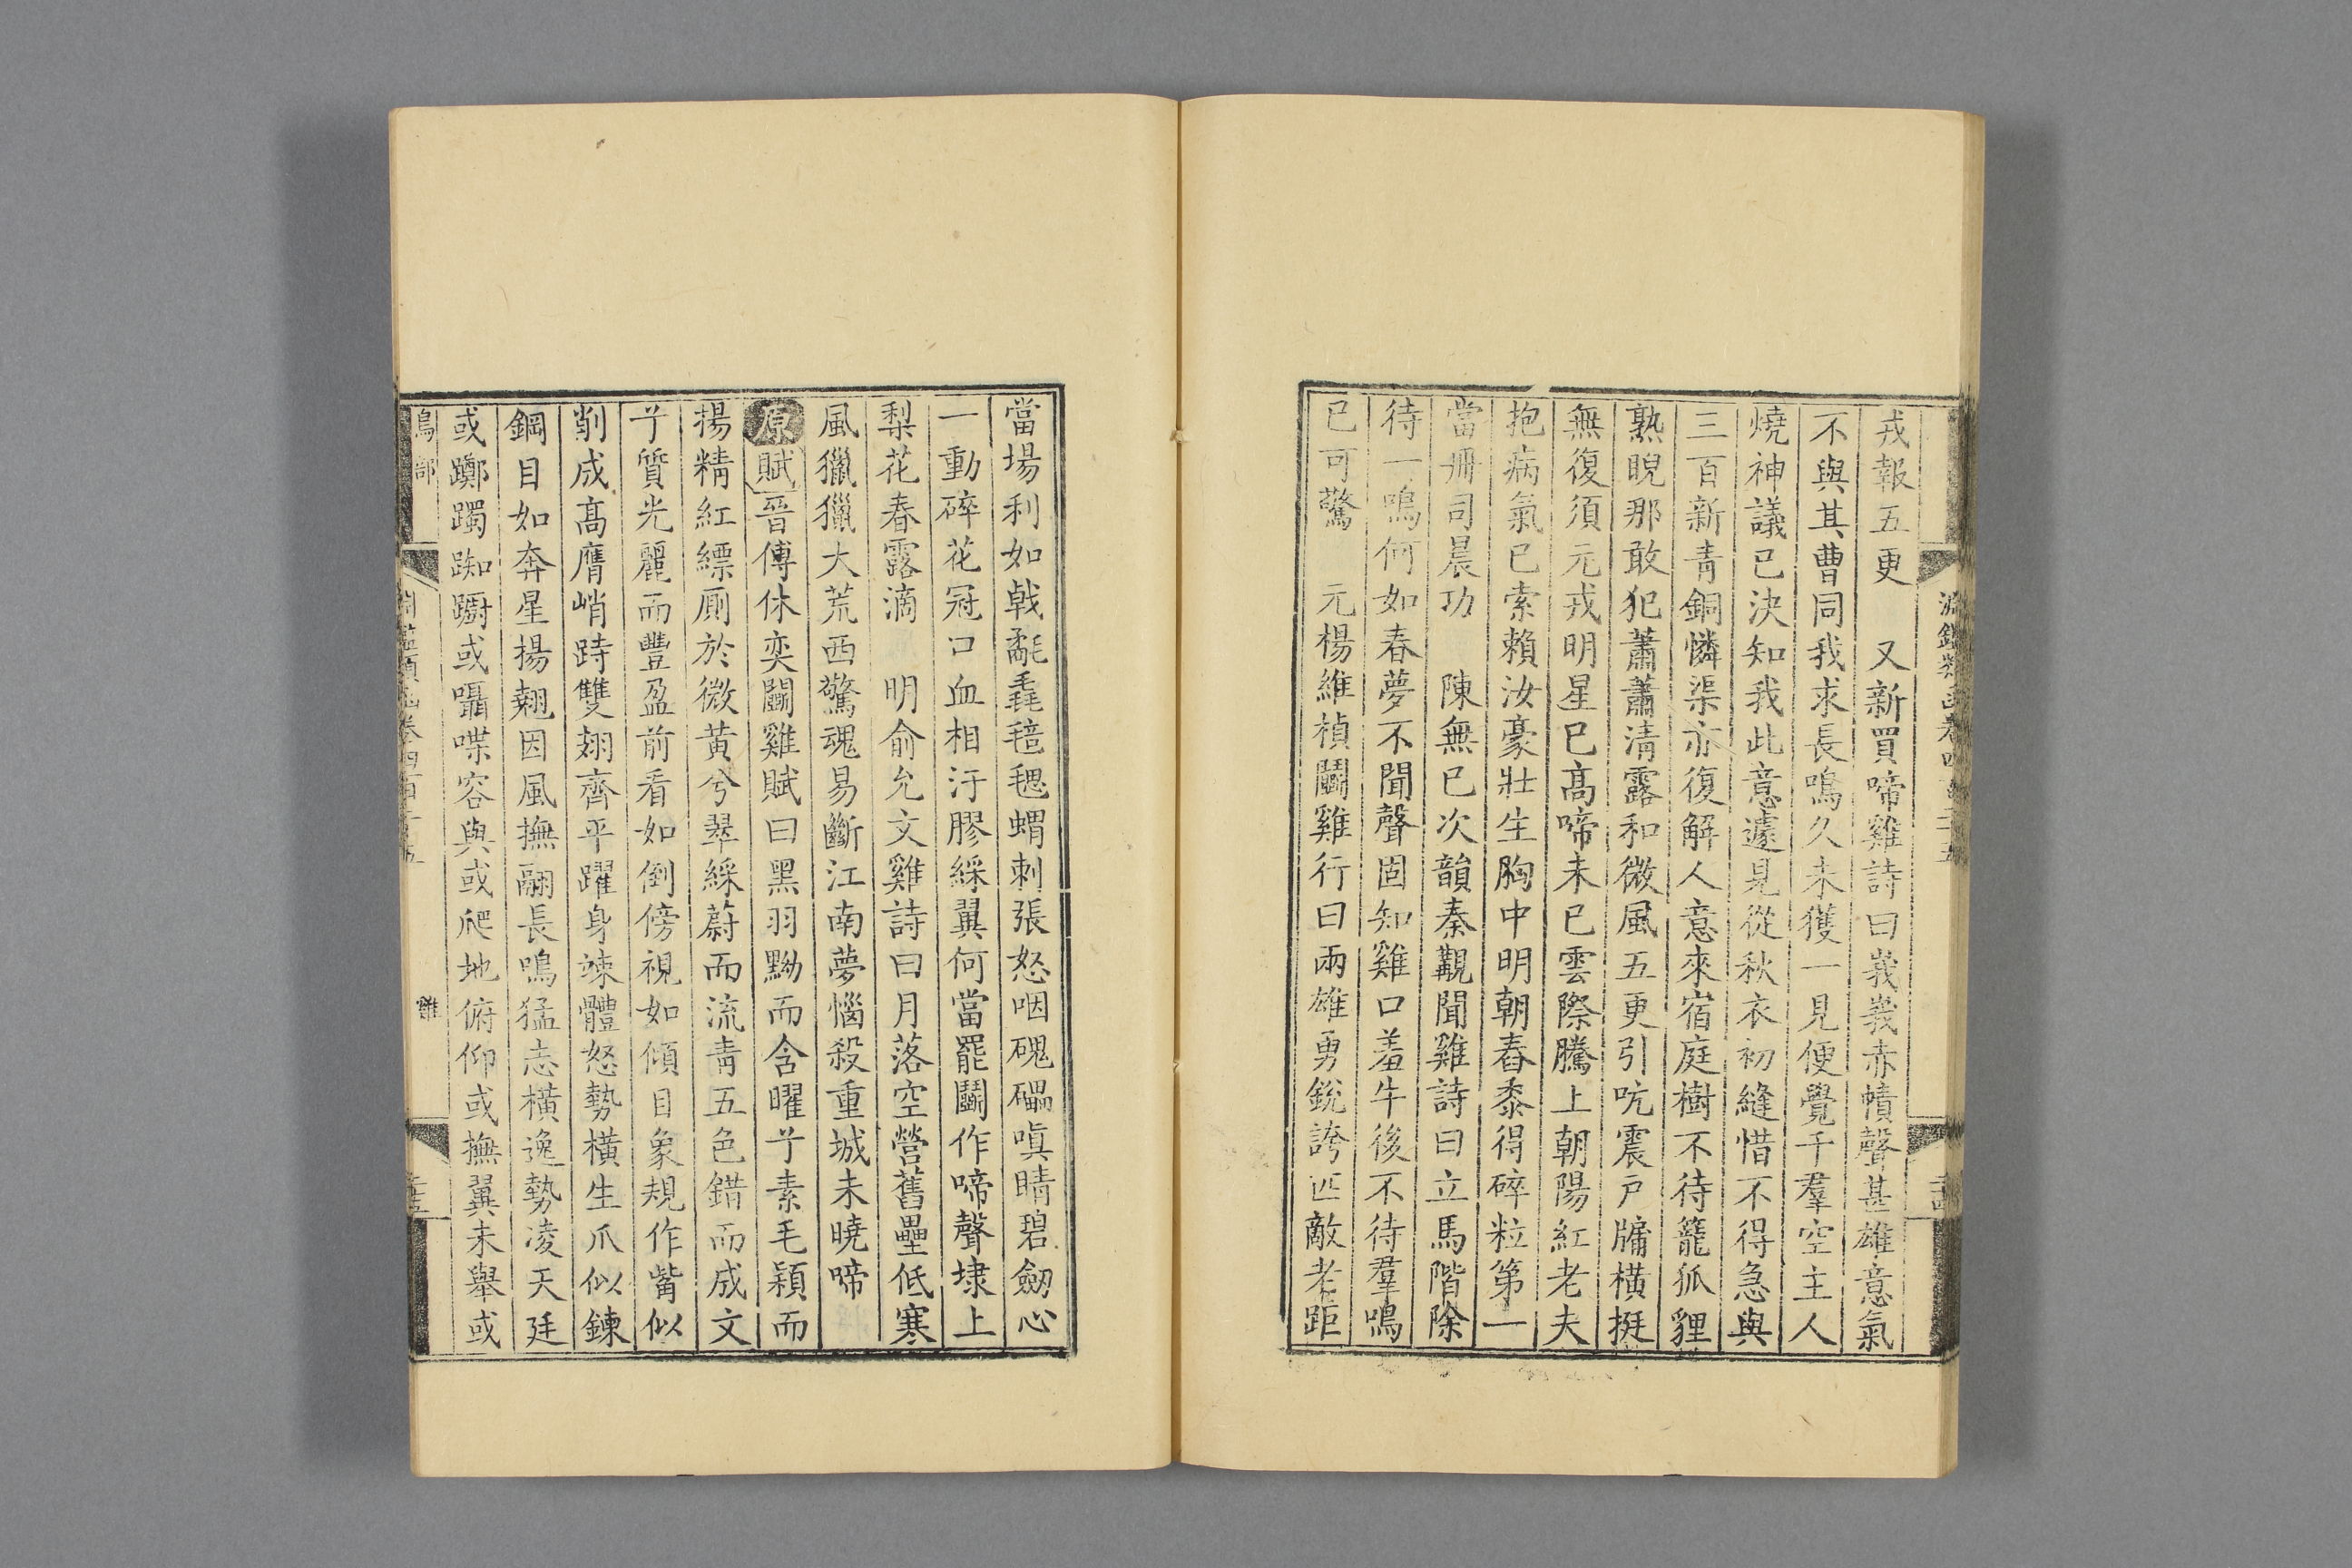 戎報五更　又新買啼雞詩曰峩峩赤幘聲甚雄意氣
不與其曹同我求長鳴久未獲一見便覺千羣空主人
燒神議已決知我此意遽見從秋衣初縫惜不得急與
三百新青銅憐渠亦復解人意來宿庭樹不待籠狐貍
熟睨那敢犯蕭蕭清露和微風五更引吭震戸牖橫挺
無復須元戎明星已高啼未已雲際騰上朝陽紅老夫
抱病氣已索賴汝豪壯生胸中明朝舂黍得碎粒第一
當冊司晨功　陳無已次韻秦觀聞雞詩曰立馬階除
待一鳴何如春夢不聞聲固知雞口羞牛後不待羣鳴
已可驚　元楊維楨鬬雞行曰兩雄勇銳誇匹敵老距
當場利如戟毻毳𣯶毸蝟刺張怒咽磈礧嗔睛碧劒心
一動碎花冠口血相汙膠綵翼何當罷鬬作啼聲埭上
梨花春露滴　明俞允文雞詩曰月落空營舊壘低寒
風獵獵大荒西驚魂易斷江南夢惱殺重城未曉啼
原賦晉傅休奕鬬雞賦曰黑羽黝而含曜兮素毛穎而
揚精紅縹厠於微黃兮翠綵蔚而流青五色錯而成文
兮質光麗而豐盈前看如倒傍視如傾目象規作觜似
削成高膺峭跱雙翅齊平躍身竦體怒勢橫生爪似鍊
鋼目如奔星揚翹因風撫翮長鳴猛志橫逸勢凌天廷
或躑躅踟躕或囁喋容與或爬地俯仰或撫翼未舉或
鳥部
雞